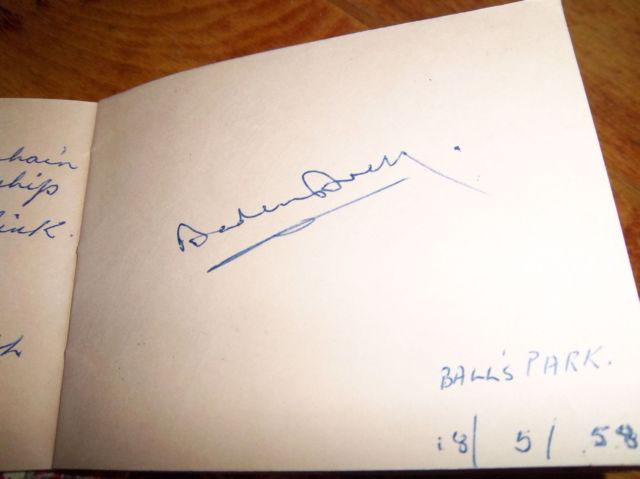 hain
ship
ink.
Baden Powell.
BALL'S PARK.
18/5/58